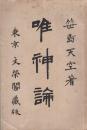 笹島天空著
唯神論
東京 文榮閣藏版